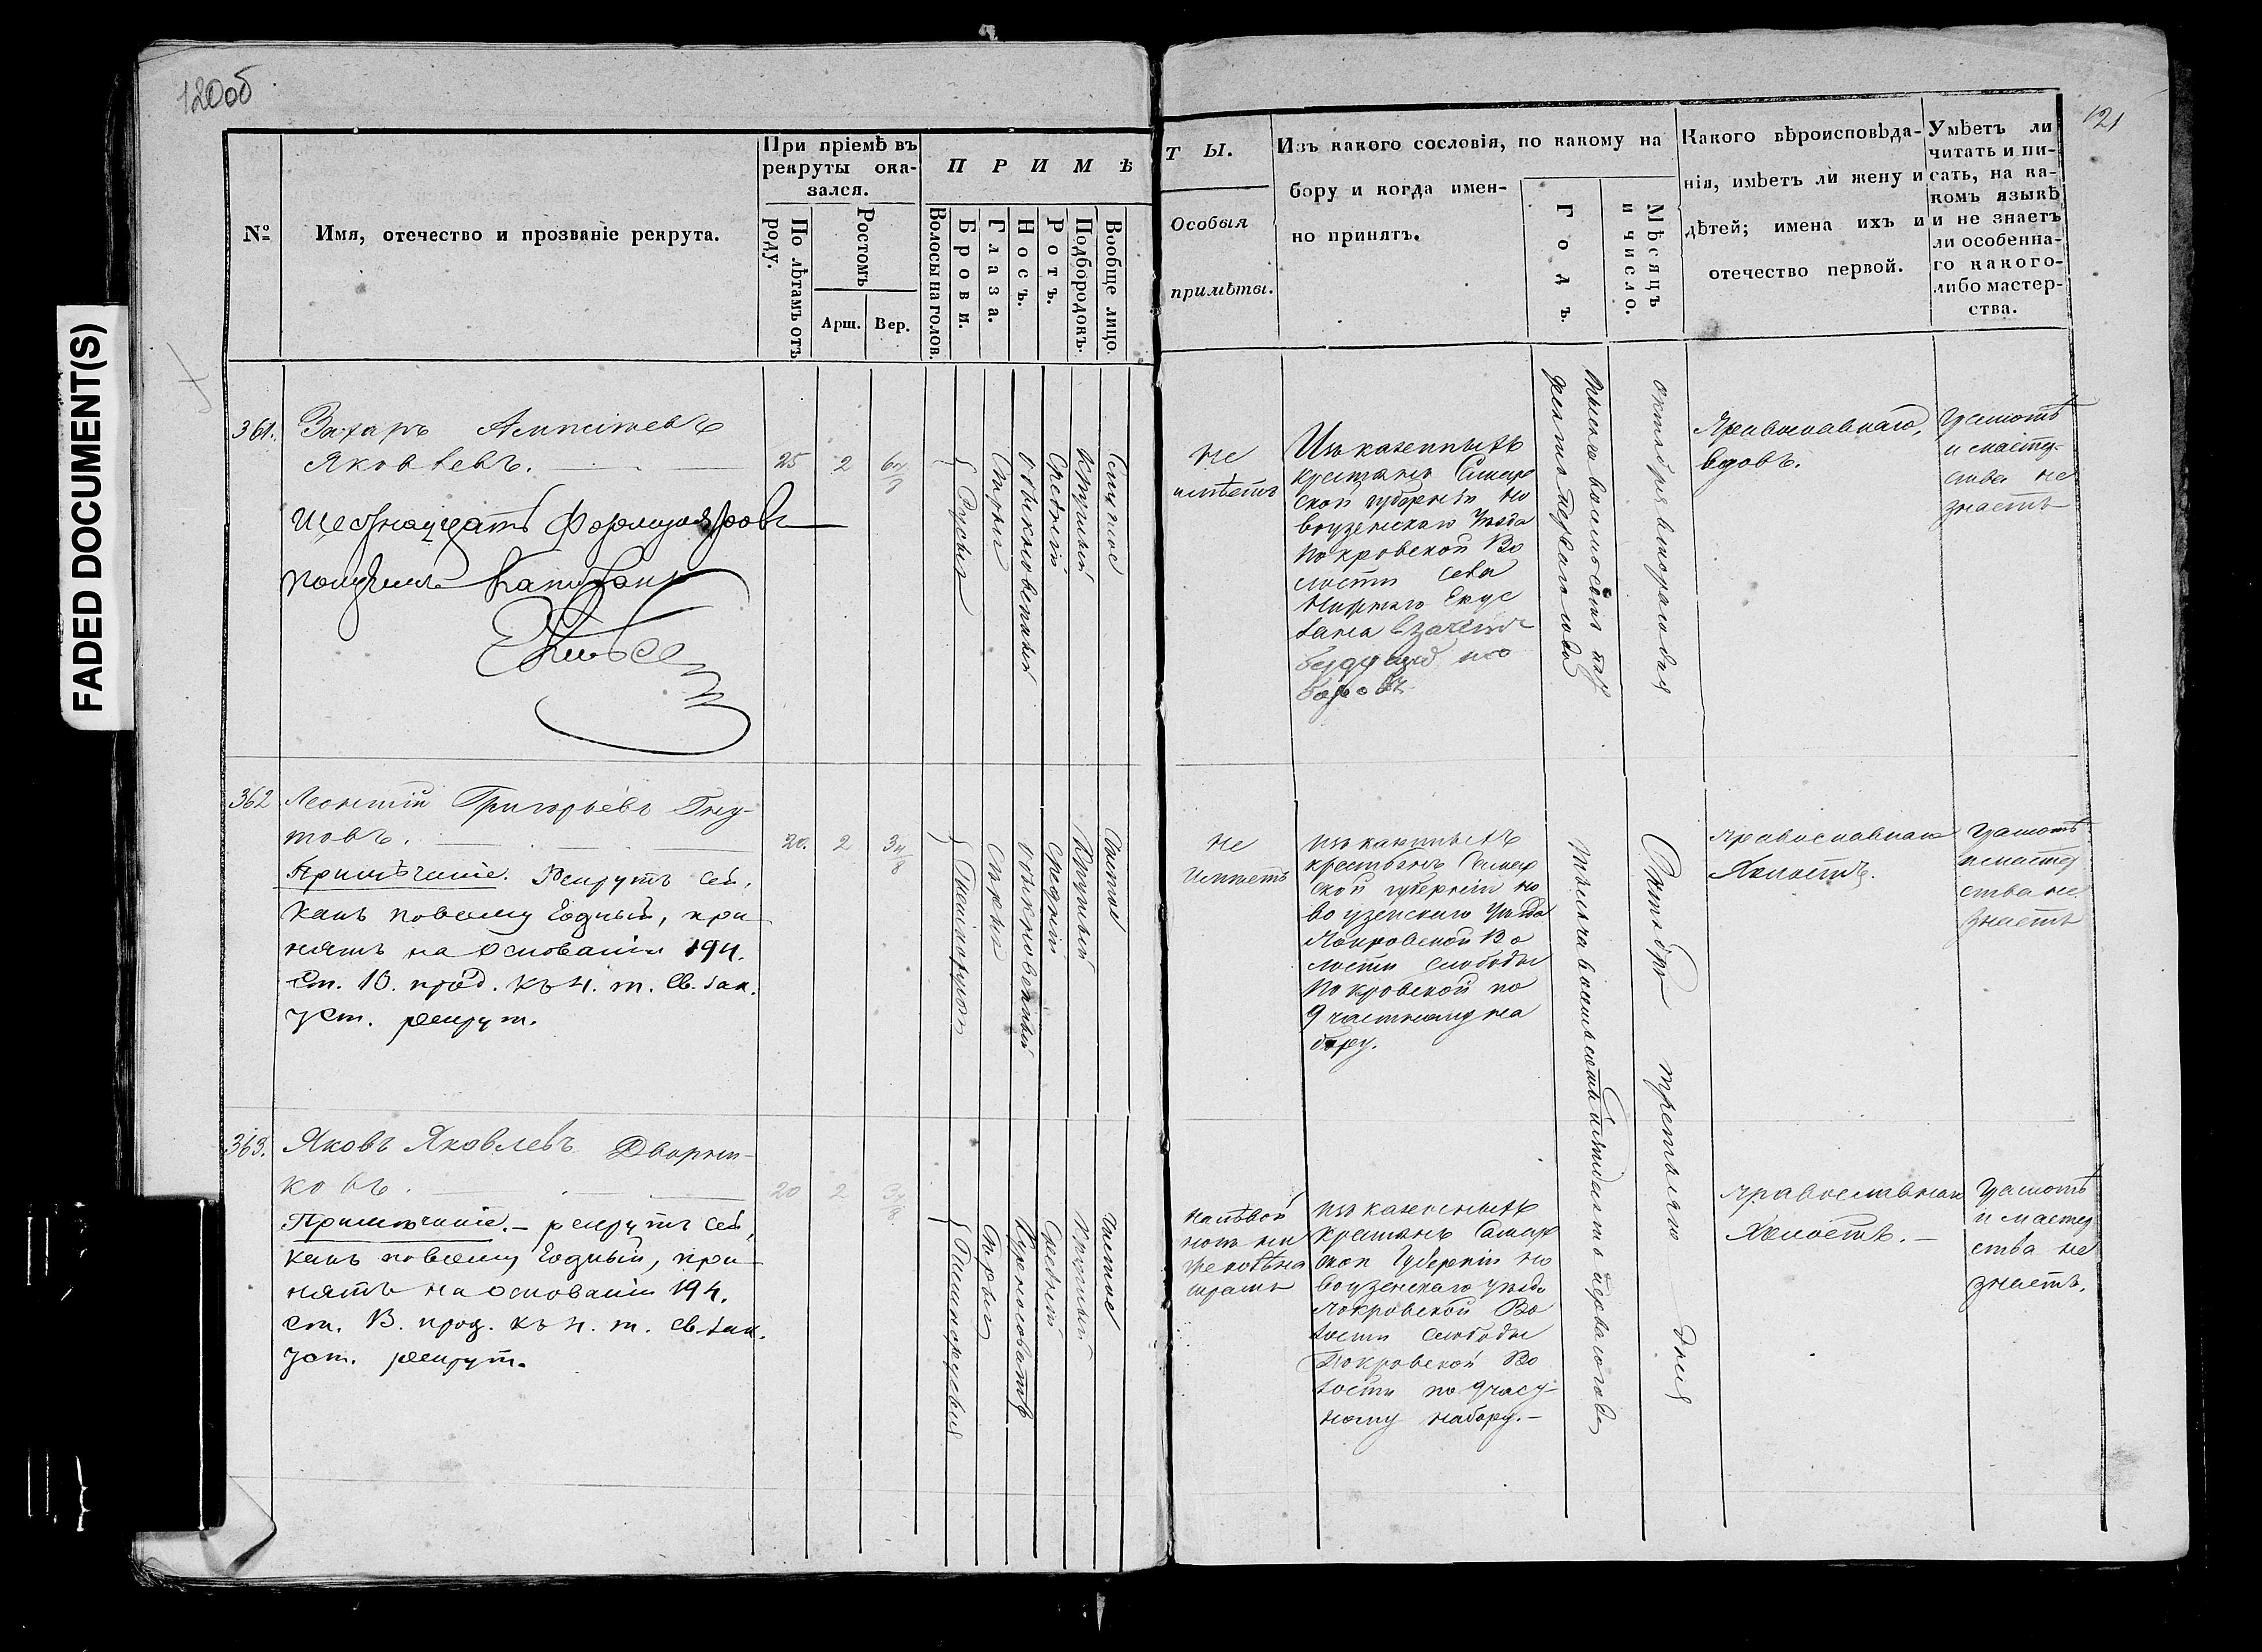 120об
121
FADED DOCUMENT(S)
№
Имя, отечество и прозваніе рекрута.
При пріемѣ въ
рекруты ока-
зался.
По лѣтамъ отъ
роду.
Ростомъ
Арш.
Вер.
П Р И М Ѣ
Волосы на голов.
Брови.
Глаза.
Носъ.
Ротъ.
Подбородокъ.
Вообще лицо.
Т Ы.
Особыя
примѣты.
Изъ какого сословія, по какому на
бору и когда имен-
но принятъ.
Годъ.
Мѣсяцъ
и число.
Какого вѣроисповѣда-
нія, имѣетъ ли жену и
дѣтей; имена ихъ и
отечество первой.
Умѣетъ ли
читать и пи-
сать, на ка-
комъ языкѣ
и не знаетъ
ли особенна-
го какого-
либо мастер-
ства.
361.
Захаръ
Яковлевъ.
25
2
6 4/8
Шестнадцать формуляровъ
получилъ Капитанъ
Русыя
Сѣрыя
Обыкновенный
Средній
Круглый
Смуглое
Не
имѣетъ
Изъ казенныхъ
крестьянъ Самар
ской губерніи Но
воузенскаго Уѣзда
Покровской Во
лости Села
Нижняго Еру
слана взачетъ
будущихъ на
боровъ
тысяча восемьсотъ пять
десятъ перваго года
октября втораго дня
Православнаго,
вдовъ.
Грамотѣ
и мастер
ства не
знаетъ
362
Леонтій Григорьевъ Гну-
товъ.
20.
2
3 4/8
Примѣчаніе. Рекрутъ сей,
какъ повсему годный, при-
нятъ на основаніи 194.
ст. 10. прод. къ 4. т. Св. зак.
уст. рекрут.
Темнорусыя
Сѣрыя
Обыкновенный
Средній
Круглый
Чистое
Не
Имѣетъ
Изъ казенныхъ
крестьянъ Самар
ской губерніи но
воузенскаго Уѣзда
Покровской Во
лости слободы
Покровской по
9 частному на
бору.
Тысяча восемьсотъ пятьдесятъ перваго года
Октября третьяго дня
Православнаго
Холостъ.
Грамотѣ
и мастер
ства не
знаетъ
363.
Яковъ Яковлевъ Дворни-
ковъ.
20
2
3 4/8
Примѣчаніе. – рекрутъ сей,
какъ повсему годный, при-
нятъ на основаніи 194.
ст. В. прод. къ 4. т. Св. зак.
уст. рекрут.
Темнорусыя
Сѣрыя
Курносоватъ
Средній
Круглый
Чистое
На лѣвой
ногѣ ни
же колѣна
шрамъ
Изъ казенныхъ
крестьянъ Самар
ской Губерніи Но
воузенскаго уѣзда
Покровской Во
лости слободы
Покровской Во
лости по 9 част-
ному набору. –
Православнаго
Холостъ. –
Грамотѣ
и мастер
ства не
знаетъ.